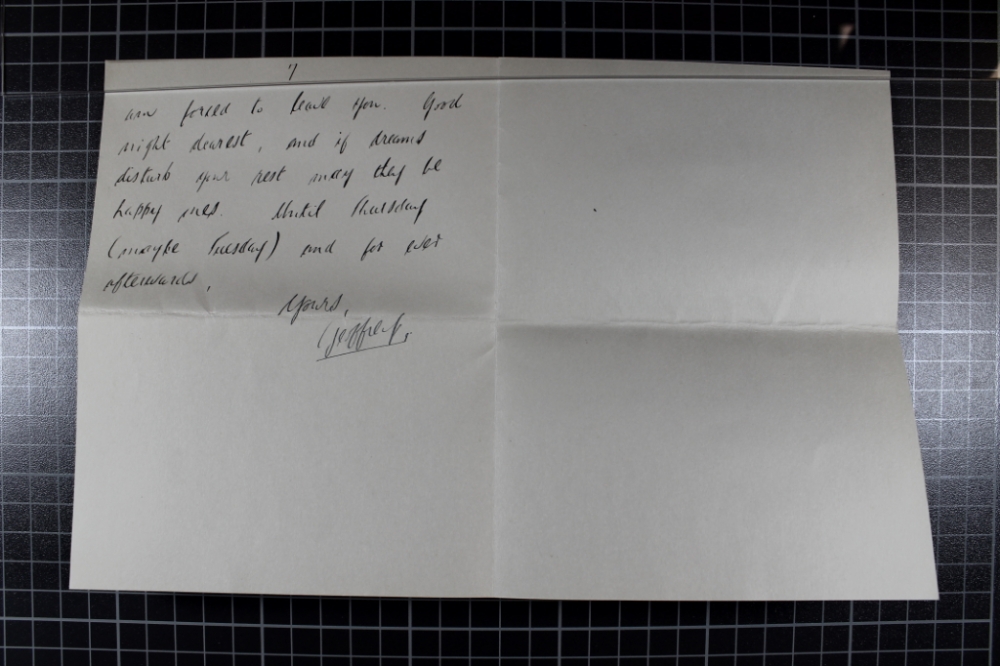 7
am forced to leave you. Good
night dearest, and if dreams
disturb your rest may they be
happy ones. Until Thursday
(maybe Tuesday) and for ever
afterwards,
Yours,
Geoffrey.